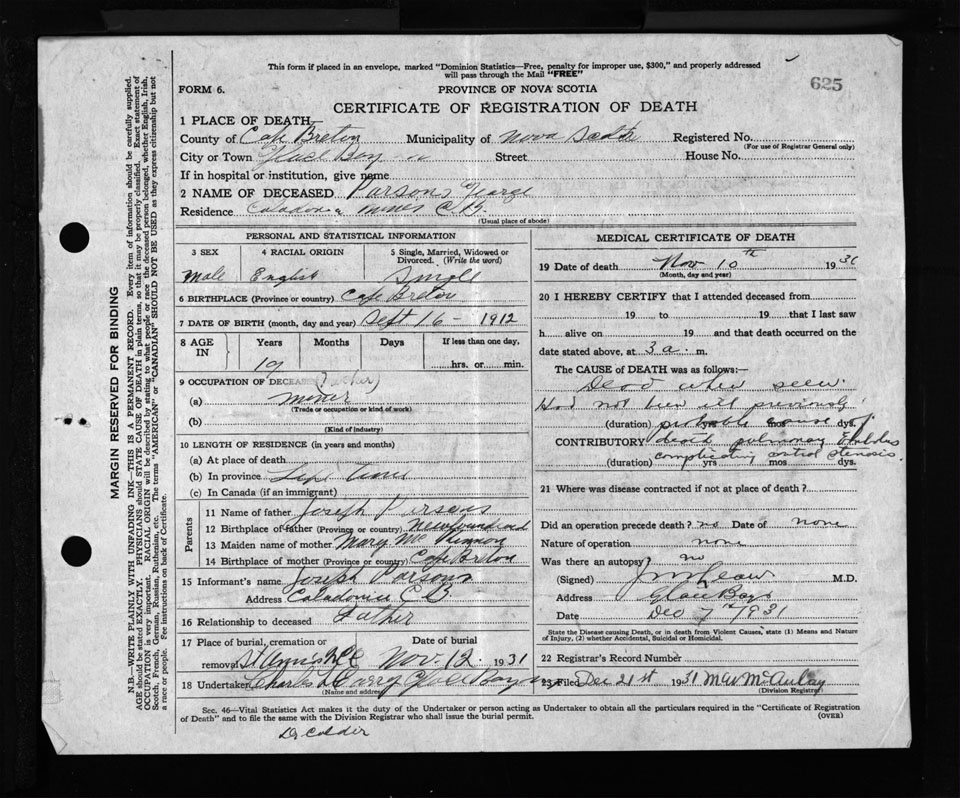 This form if placed in an envelope, marked "Dominion Statistics—Free, penalty for improper use, $300," and properly addressed
will pass through the Mail "FREE"
625
FORM 6.
PROVINCE OF NOVA SCOTIA
CERTIFICATE OF REGISTRATION OF DEATH
1 PLACE OF DEATH—
County of Cape Breton Municipality of Nova Scotia Registered No.
(For use of Registrar General only)
City or Town Glace Bay Street House No.
If in hospital or institution, give name
2 NAME OF DECEASED Parsons, George
Residence Caledonia Mines C.B.
(Usual place of abode)
PERSONAL AND STATISTICAL INFORMATION
3 SEX 4 RACIAL ORIGIN 5 Single, Married, Widowed or Divorced. (Write the word)
Male English Single
6 BIRTHPLACE (Province or country) Cape Breton
7 DATE OF BIRTH (month, day and year) Sept 16 – 1912
8 AGE IN Years Months Days If less than one day,
19 hrs. or min.
9 OCCUPATION OF DECEASED (father)
(a) miner
(Trade or occupation or kind of work)
(b)
(Kind of industry)
10 LENGTH OF RESIDENCE (in years and months)
(a) At place of death
(b) In province Life time
(c) In Canada (if an immigrant)
Parents
11 Name of father Joseph Parsons
12 Birthplace of father (Province or country) Newfoundland
13 Maiden name of mother Mary McKinnon
14 Birthplace of mother (Province or country) Cape Breton
15 Informant's name Joseph Parsons
Address Caledonia C B.
16 Relationship to deceased Father
17 Place of burial, cremation or removal Date of burial
Nov. 12. 1931
18 Undertaker Charles Glace Bay
(Name and address)
MEDICAL CERTIFICATE OF DEATH
19 Date of death Nov 10th 1931
(Month, day and year)
20 I HEREBY CERTIFY that I attended deceased from
19 to 19 that I last saw
h alive on 19 and that death occurred on the
date stated above, at 3 a. m.
The CAUSE of DEATH was as follows:—
Dead when seen.
Had not been ill previously
(duration) yrs mos dys.
probable cause of
CONTRIBUTORY death pulmonary Embolus
complicating mitral stenosis.
(duration) yrs mos dys.
21 Where was disease contracted if not at place of death?
Did an operation precede death? no Date of none
Nature of operation none
Was there an autopsy no
(Signed) M.D.
Address Glace Bay
Date Dec 7th 1931
State the Disease causing Death, or in death from Violent Causes, state (1) Means and Nature of Injury, (2) whether Accidental, Suicidal or Homicidal.
22 Registrar's Record Number
23 Filed Dec 21st 1931 McAulay
(Division Registrar)
Sec. 46—Vital Statistics Act makes it the duty of the Undertaker or person acting as Undertaker to obtain all the particulars required in the "Certificate of Registration
of Death" and to file the same with the Division Registrar who shall issue the burial permit.
(OVER)
Dr Calder
MARGIN RESERVED FOR BINDING
N.B.—WRITE PLAINLY WITH UNFADING INK—THIS IS A PERMANENT RECORD. Every item of information should be carefully supplied.
AGE should be stated EXACTLY. PHYSICIANS should STATE CAUSE OF DEATH in plain terms, so that it may be properly classified. Exact statement of
OCCUPATION is very important. RACIAL ORIGIN will be described by stating to what people or race the deceased person belonged, whether English, Irish,
Scotch, French, German, Russian, Ruthenian, etc. The terms "AMERICAN" or "CANADIAN" SHOULD NOT BE USED as they express citizenship but not
a race or people. Fee instructions on back of Certificate.